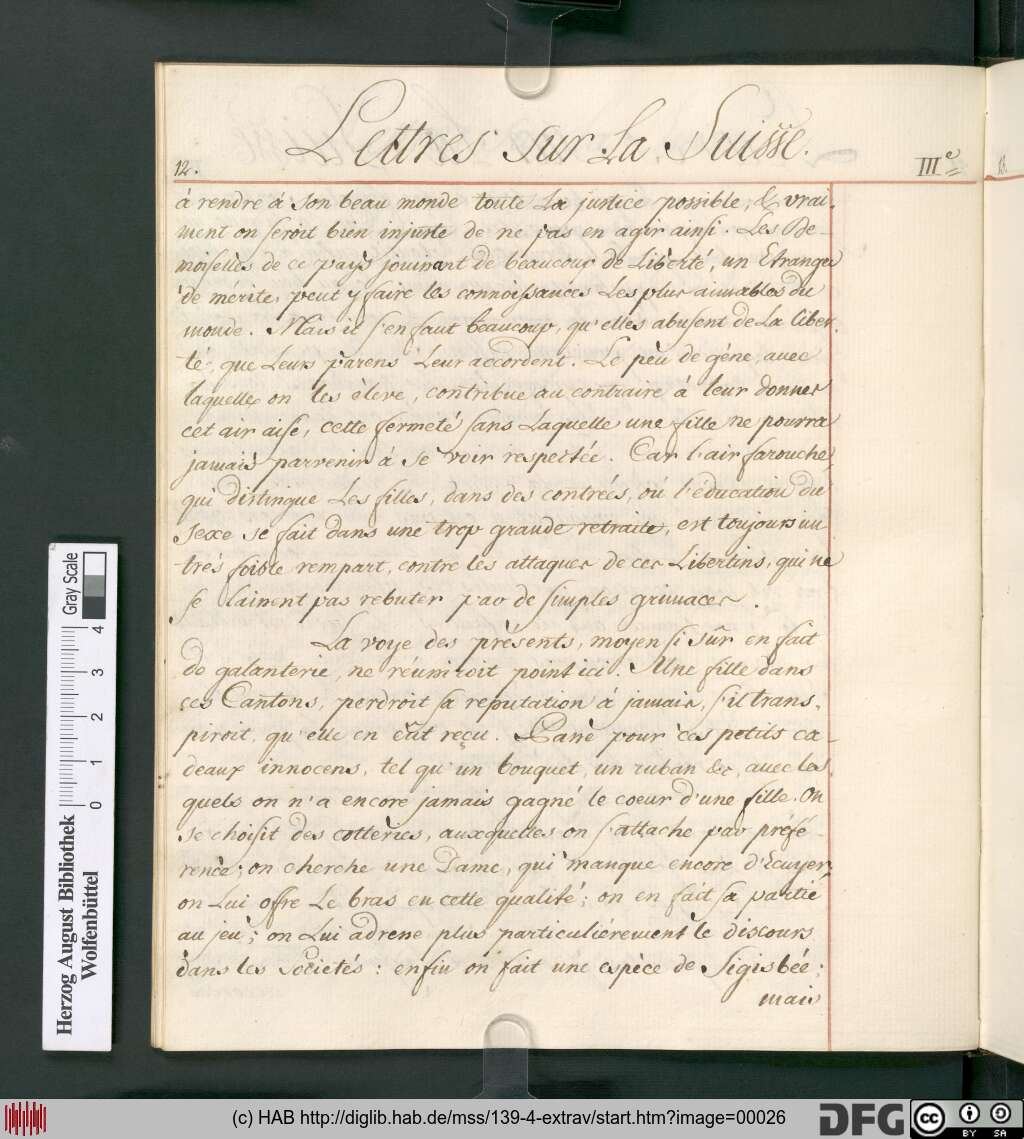 Lettres sur La Suisse.
12.
III.e
à rendre à Son beau monde toute La justice possible, & vrai-
ment on seroit bien injuste de ne pas en agir ainsi. Les De-
moiselles de ce pays jouissant de beaucoup de Liberté, un Etranger
de mérite, peut y faire les connoissances Les plus aimables du
monde. Mais il s'en faut beaucoup, qu'elles abusent de La liber-
té, que Leurs parens Leur accordent. Le peu de gêne, avec
laquelle on les éleve, contribue au contraire à leur donner
cet air aisé, cette fermeté sans Laquelle une fille ne pourra
jamais parvenir à se voir respectée. Car l'air farouche,
qui distingue Les filles, dans des contrées, où l'éducation du
sexe se fait dans une trop grande retraite, est toujours un
très foible rempart, contre les attaques de ces Libertins, qui ne
se laissent pas rebuter par de simples grimaces.
La voye des présents, moyen si sûr en fait
de galanterie, ne réussiroit point ici. Une fille dans
ces Cantons, perdroit sa reputation à jamais, s'il trans-
piroit, qu'elle en eût reçu. Passe pour ces petits ca-
deaux innocens, tel qu'un bouquet, un ruban &c, avec les
quels on n'a encore jamais gagné le coeur d'une fille. On
se choisit des cotteries, auxquelles on s'attache par préfé-
rence; on cherche une Dame, qui manque encore d'Ecuyer,
on Lui offre Le bras en cette qualité; on en fait sa partie
au jeu; on Lui adresse plus particulièrement le discours
dans les Societés: enfin on fait une espèce de Sigisbée;
mais
Herzog August Bibliothek
Wolfenbüttel
0 1 2 3 4
Gray Scale
(c) HAB http://diglib.hab.de/mss/139-4-extrav/start.htm?image=00026
DFG
cc BY SA